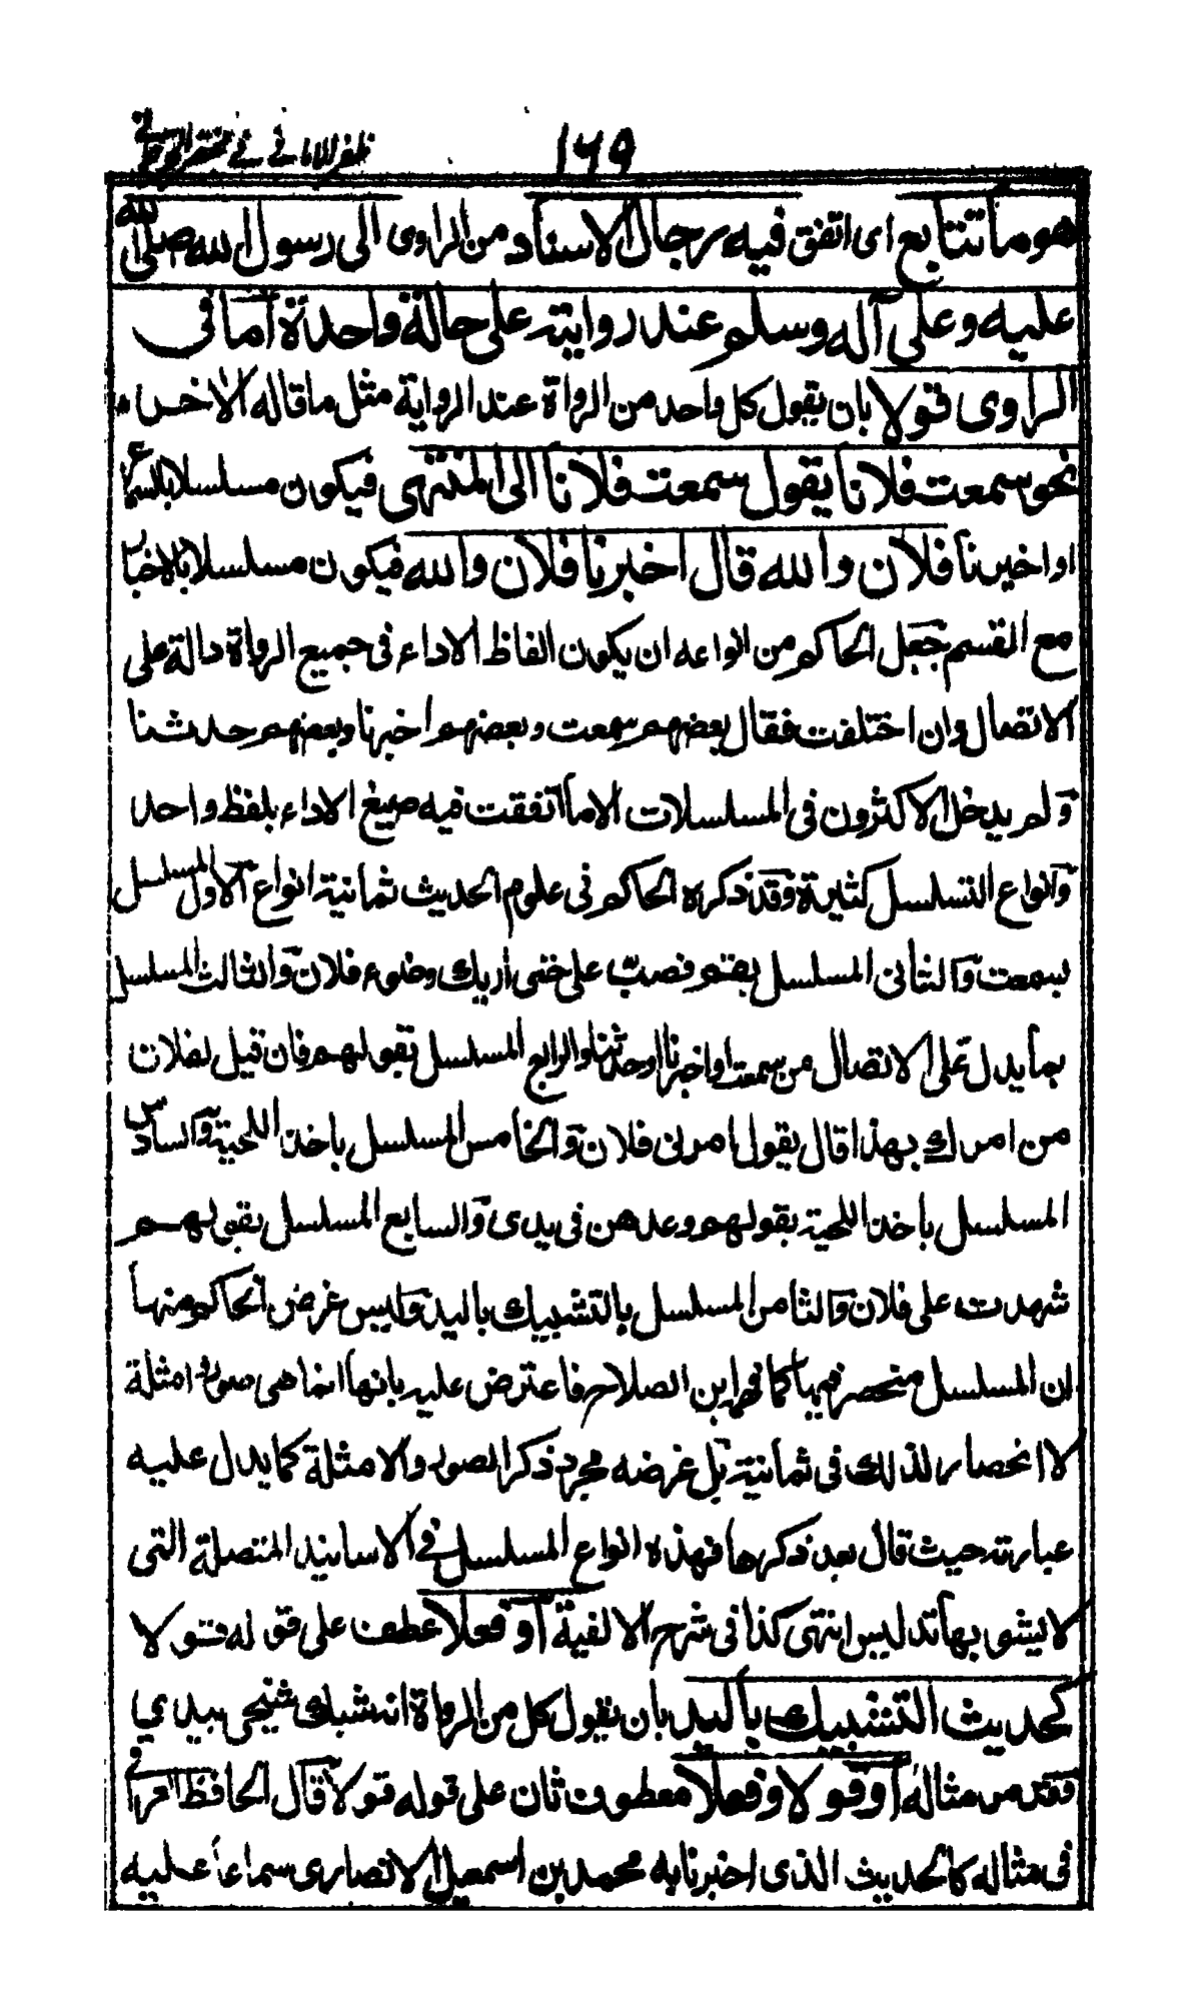 ١٦٩
ظفر الاماني في مختصر الجرجاني
هو ما تتابع اى اتفق فيه رجال الاسناد من الراوى الى رسول الله صلى الله
عليه وعلى آله وسلم عند روايته على حالة واحدة آما فى
الراوى قولا بان يقول كل واحد من الرواة عند الرواية مثل ما قاله الاخر
نحو سمعت فلانا يقول سمعت فلانا الى المنتهى فيكون مسلسلا بالسماع
او اخبرنا فلان والله قال اخبرنا فلان والله فيكون مسلسلا بالاخبار
مع القسم جعل الحاكم من انواعه ان يكون الفاظ الاداء فى جميع الرواة دالة على
الاتصال وان اختلفت فقال بعضهم سمعت وبعضهم اخبرنا وبعضهم حدثنا
ولم يدخل الاكثرون فى المسلسلات الا ما اتفقت فيه صيغ الاداء بلفظ واحد
وانواع التسلسل كثيرة وقد ذكره الحاكم فى علوم الحديث ثمانية انواع الاول المسلسل
بسمعت والثانى المسلسل بقم فصب على حتى اريك وضوء فلان والثالث المسلسل
بما يدل على الاتصال من سمعت او اخبرنا او حدثنا والرابع المسلسل بقولهم فان قيل لفلان
من امرك بهذا قال يقول امرنى فلان والخامس المسلسل باخذ اللحية والسادس
المسلسل باخذ اللحية بقولهم وعدهن فى يدى والسابع المسلسل بقولهم
شهدت على فلان والثامن المسلسل بالتشبيك باليد وليس غرض الحاكم منها
ان المسلسل منحصر فيها كما فهم ابن الصلاح فاعترض عليه بانها انما هى صور وامثلة
لا انحصار لذلك فى ثمانية بل غرضه مجرد ذكر الصور والامثلة كما يدل عليه
عبارته حيث قال بعد ذكرها فهذه انواع المسلسل في الاسانيد المتصلة التى
لا يشوبها تدليس انتهى كذا فى شرح الالفية او فعلا عطف على قوله قولا
كحديث التشبيك باليد بان يقول كل من الرواة انه شبك شيخى بيدي
وقد مر مثاله او قولا وفعلا معطوف ثان على قوله قولا قال الحافظ العراقي
فى مثاله كالحديث الذى اخبرنا به محمد بن اسمعيل الانصارى سماعا عليه